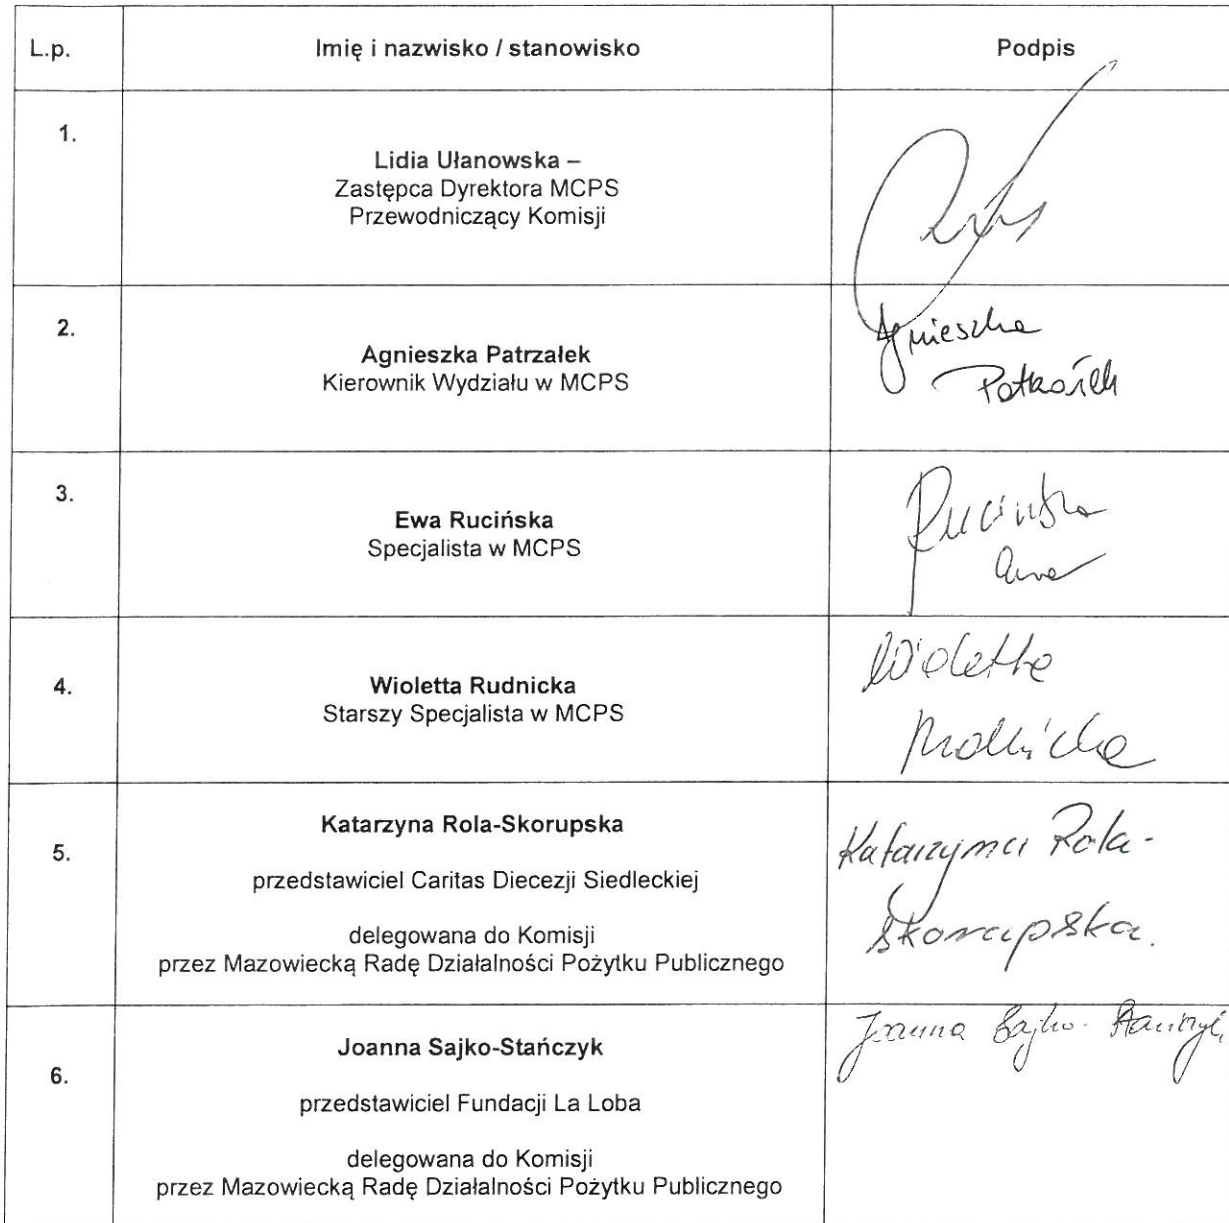 L.p. Imię i nazwisko / stanowisko Podpis
1.
Lidia Ułanowska –
Zastępca Dyrektora MCPS
Przewodniczący Komisji
2.
Agnieszka
Agnieszka Patrzałek
Kierownik Wydziału w MCPS
Patrzałek
3.
Rucińska
Ewa Rucińska
Specjalista w MCPS
4.
Wioletta
Wioletta Rudnicka
Starszy Specjalista w MCPS
Rudnicka
5.
Katarzyna Rola-Skorupska
Katarzyna Rola-
przedstawiciel Caritas Diecezji Siedleckiej
Skorupska.
delegowana do Komisji
przez Mazowiecką Radę Działalności Pożytku Publicznego
6.
Joanna Sajko-Stańczyk
Joanna Sajko-Stańczyk
przedstawiciel Fundacji La Loba
delegowana do Komisji
przez Mazowiecką Radę Działalności Pożytku Publicznego